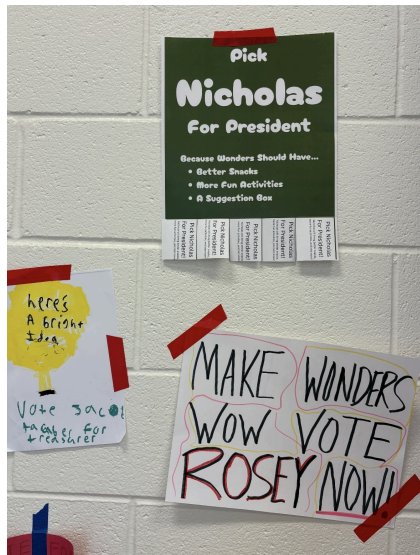 Pick
Nicholas
For President
Because Wonders Should Have...
• Better Snacks
• More Fun Activities
• A Suggestion Box
Pick Nicholas
For President!
Pick Nicholas
For President!
Pick Nicholas
For President!
Pick Nicholas
For President!
Pick Nicholas
For President!
here's
A bright
Idea
Vote Jacob
for
treasurer
MAKE WONDERS
WOW VOTE
ROSEY NOW!